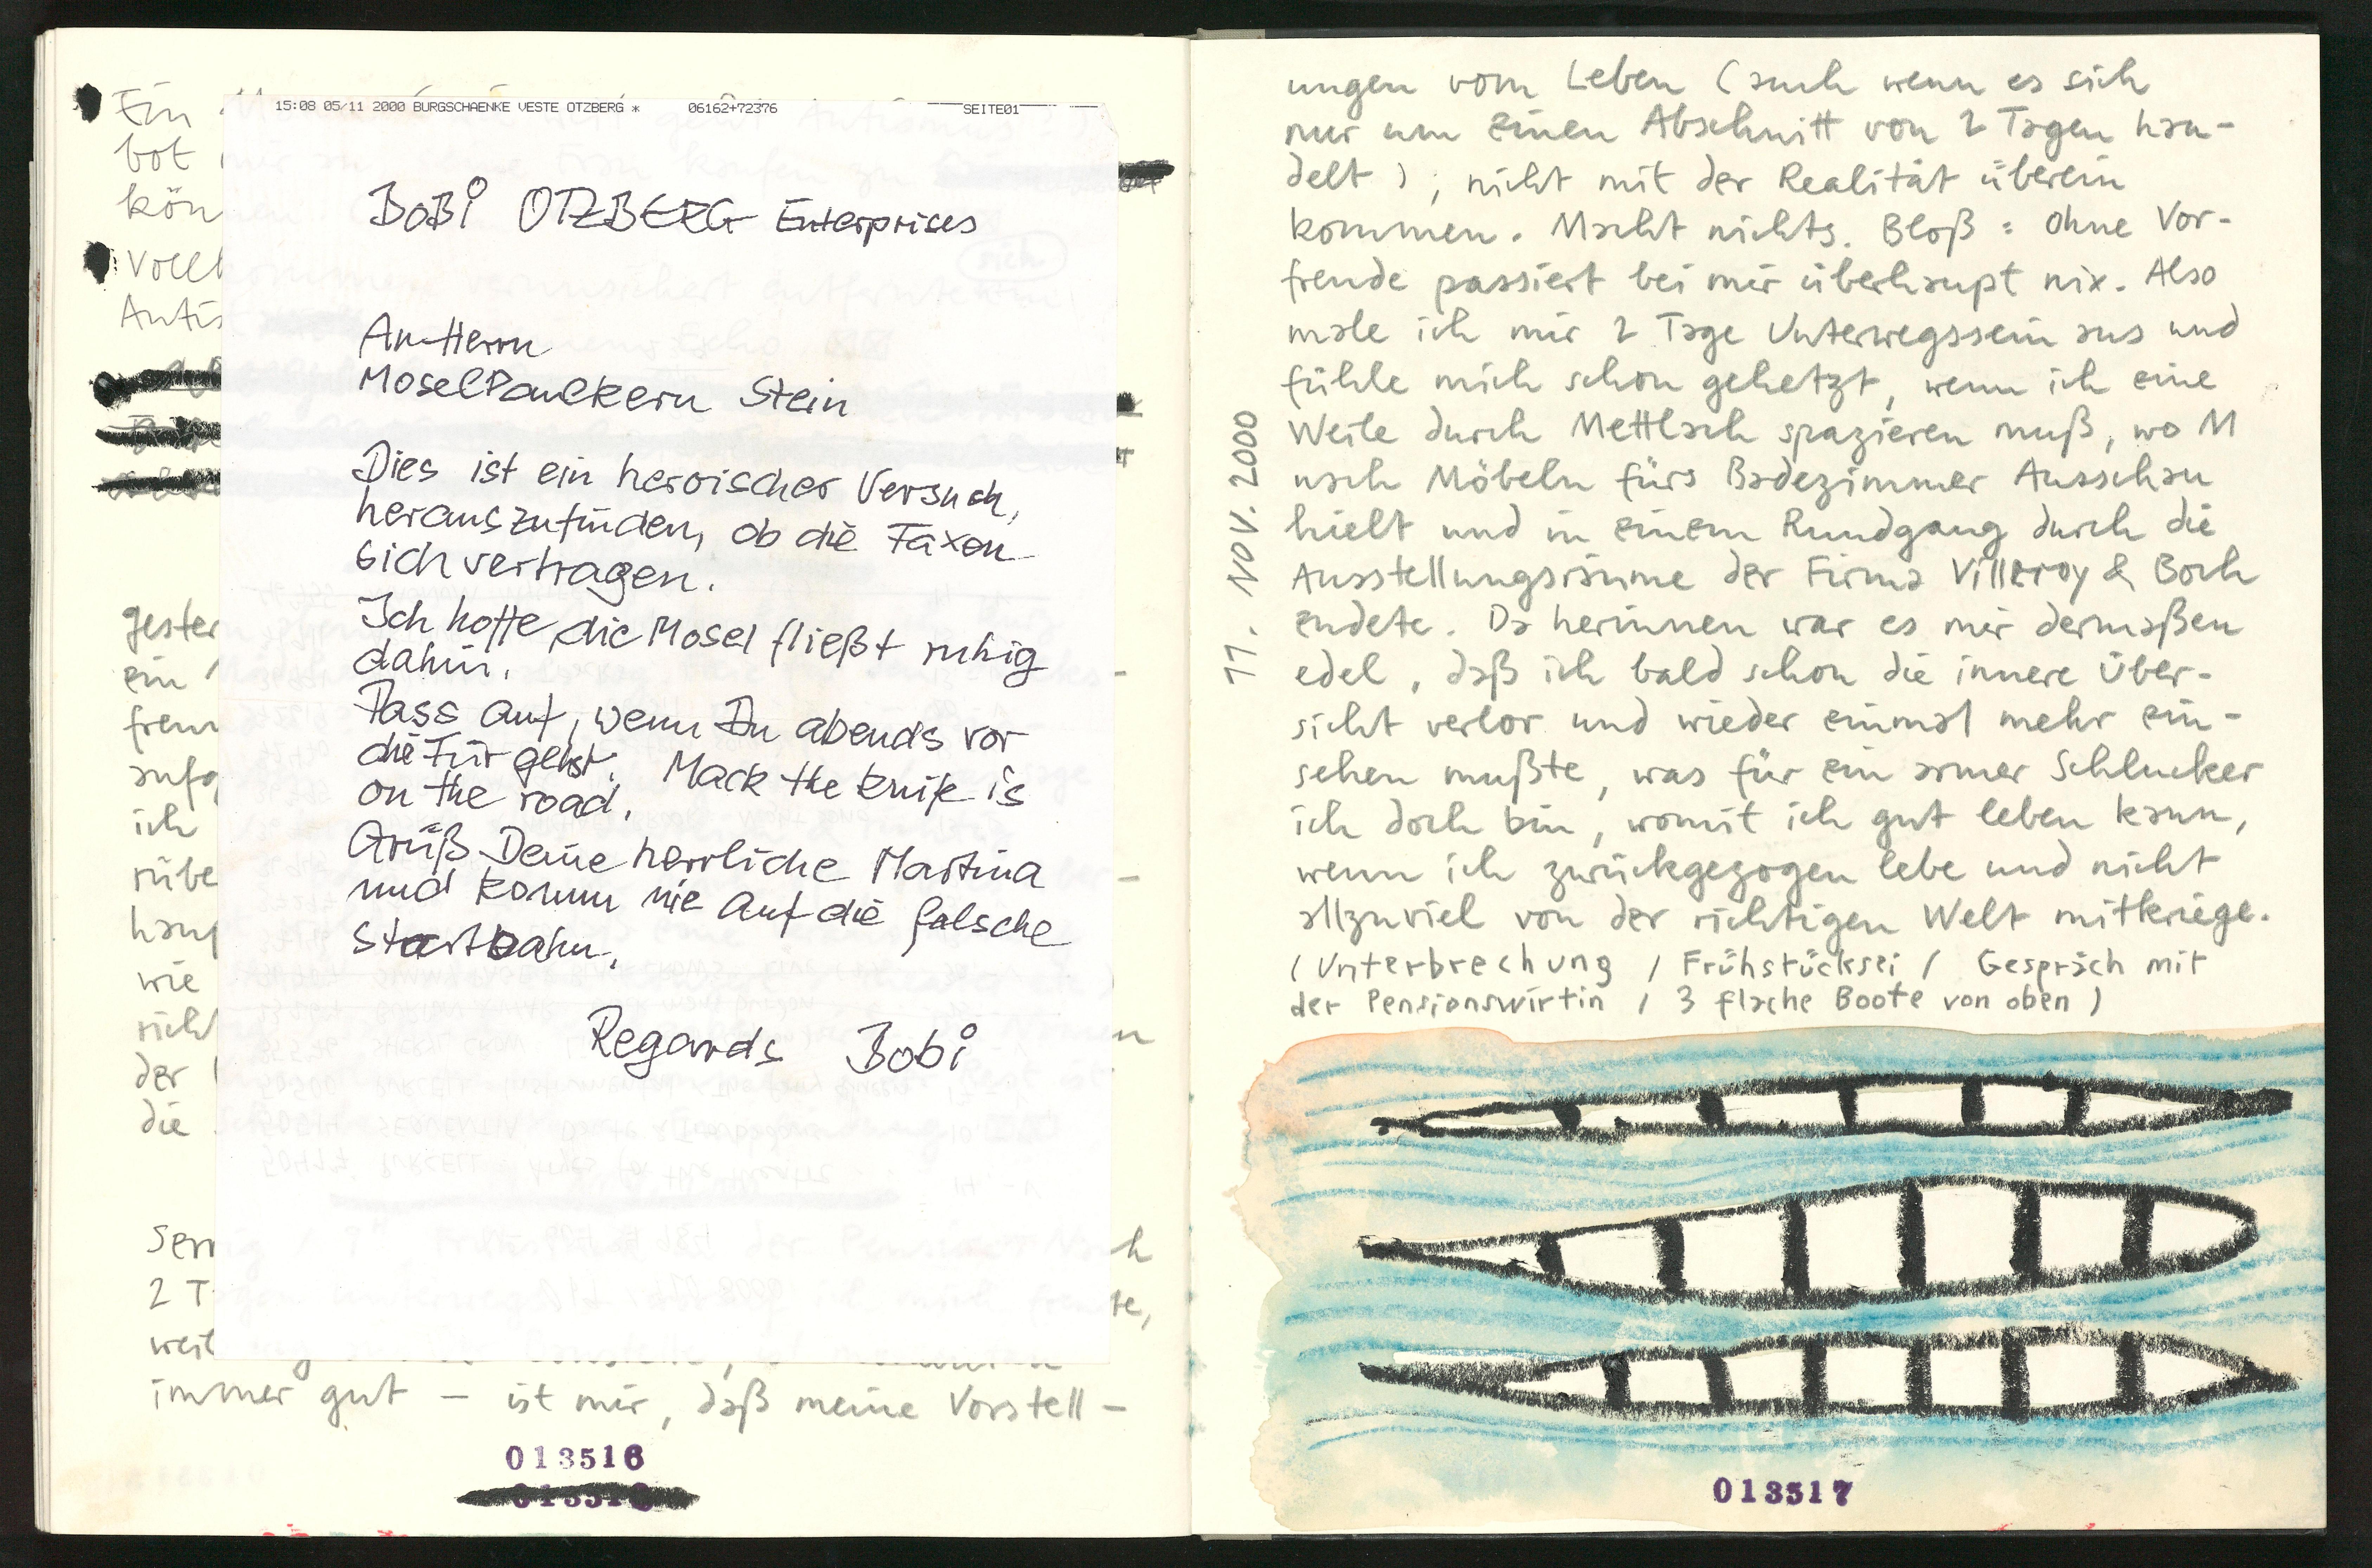 Ein
bot
kön
Voll
Antis
gester
ein
freun
aufg
ich
rübe
hauf
wie
richt
der
die
Serr
2 T
weil
immer gut – ist mir, daß meine Vorstell-
013516
15:08 05/11 2000 BURGSCHAENKE VESTE OTZBERG * 06162+72376 SEITE01
BoBi OTZBERG Enterprises
An Herrn
MoselPaulkern Stein
Dies ist ein heroischer Versuch,
herauszufinden, ob die Faxen
sich vertragen.
Ich hoffe die Mosel fließt ruhig
dahin.
Pass auf, wenn Du abends vor
die Tür gehst. Mack the knife is
on the road.
Grüß Deine herrliche Martina
und komm nie auf die falsche
Startbahn.
Regards Bobi
11. NOV. 2000
ungen vom Leben (auch wenn es sich
nur um einen Abschnitt von 2 Tagen han-
delt), nicht mit der Realität überein
kommen. Macht nichts. Bloß: Ohne Vor-
freude passiert bei mir überhaupt nix. Also
male ich mir 2 Tage Unterwegssein aus und
fühle mich schon gehetzt, wenn ich eine
Weile durch Mettlach spazieren muß, wo M
nach Möbeln fürs Badezimmer Ausschau
hielt und in einem Rundgang durch die
Ausstellungsräume der Firma Villeroy & Boch
endete. Da herinnen war es mir dermaßen
edel, daß ich bald schon die innere Über-
sicht verlor und wieder einmal mehr ein-
sehen mußte, was für ein armer Schlucker
ich doch bin, womit ich gut leben kann,
wenn ich zurückgezogen lebe und nicht
allzuviel von der richtigen Welt mitkriege.
(Unterbrechung / Frühstücksei / Gespräch mit
der Pensionswirtin / 3 flache Boote von oben)
013517